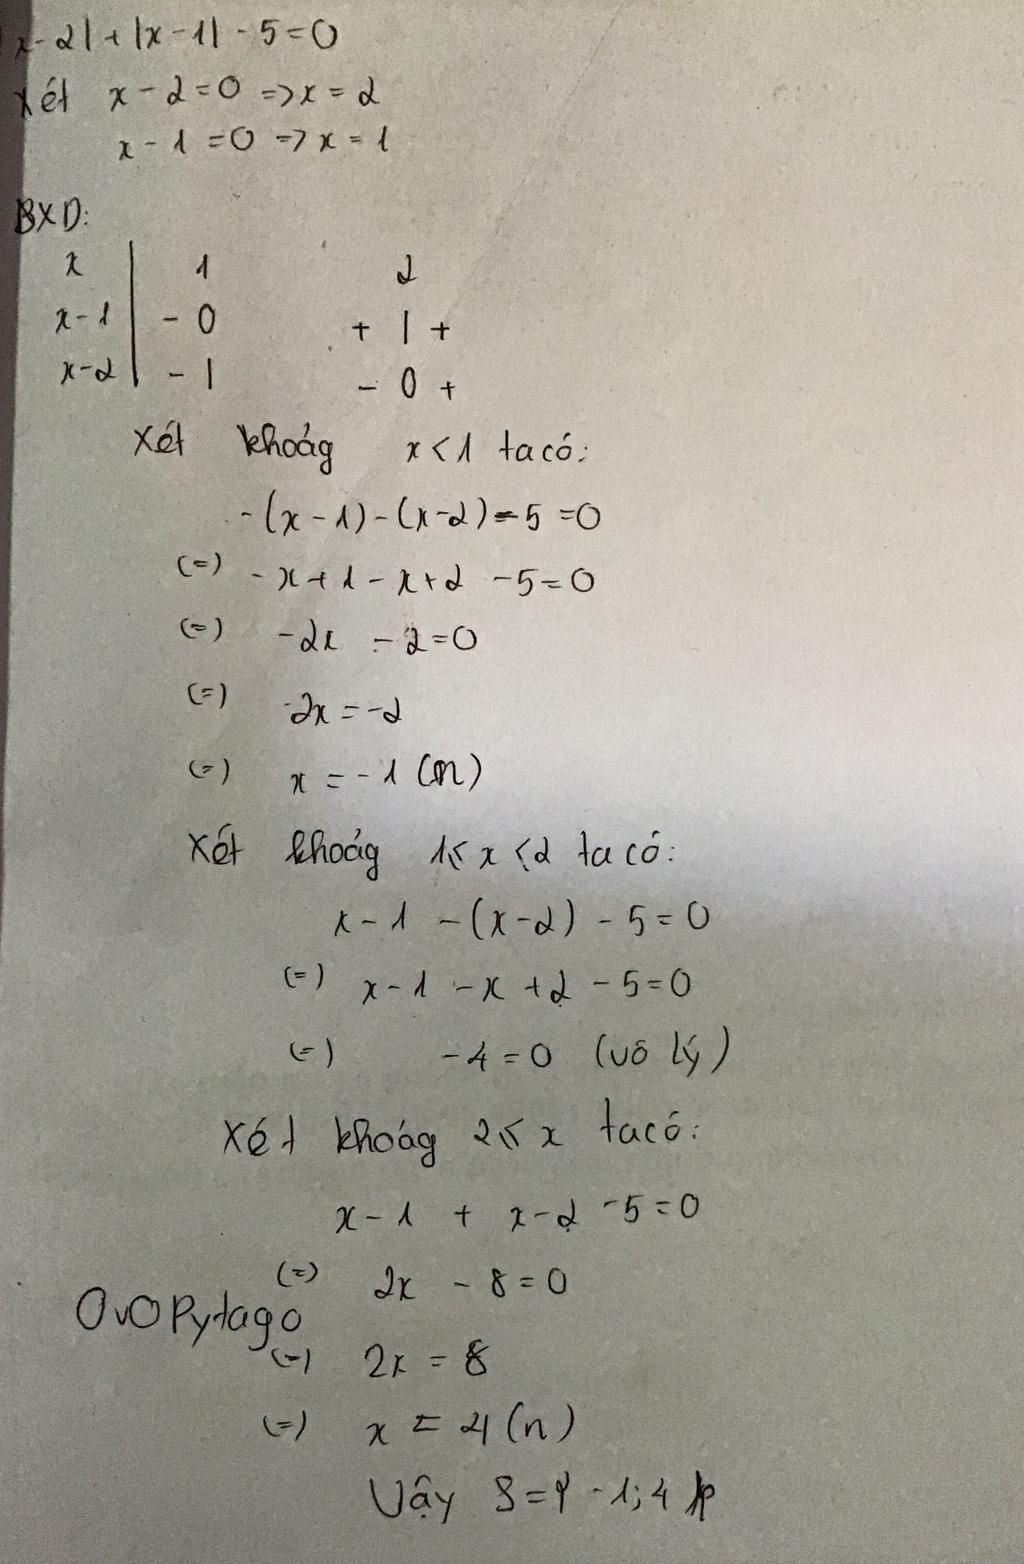 x-2|+|x-1|-5=0
Xét x-2=0 =>x=2
x-1=0 =>x=1
BXD:
x | 1 2
x-1 | - 0 + | +
x-2 | - | - 0 +
Xét khoảg x<1 ta có:
-(x-1)-(x-2)-5=0
(=) -x+1-x+2-5=0
(=) -2x-2=0
(=) 2x=-2
(=) x=-1 (n)
Xét khoảg 1≤x<2 ta có:
x-1-(x-2)-5=0
(=) x-1-x+2-5=0
(=) -4=0 (vô lý)
Xét khoảg 2≤x ta có:
x-1+x-2-5=0
(=) 2x-8=0
OvO Pytago
(=) 2x=8
(=) x=4 (n)
Vậy S={-1;4}